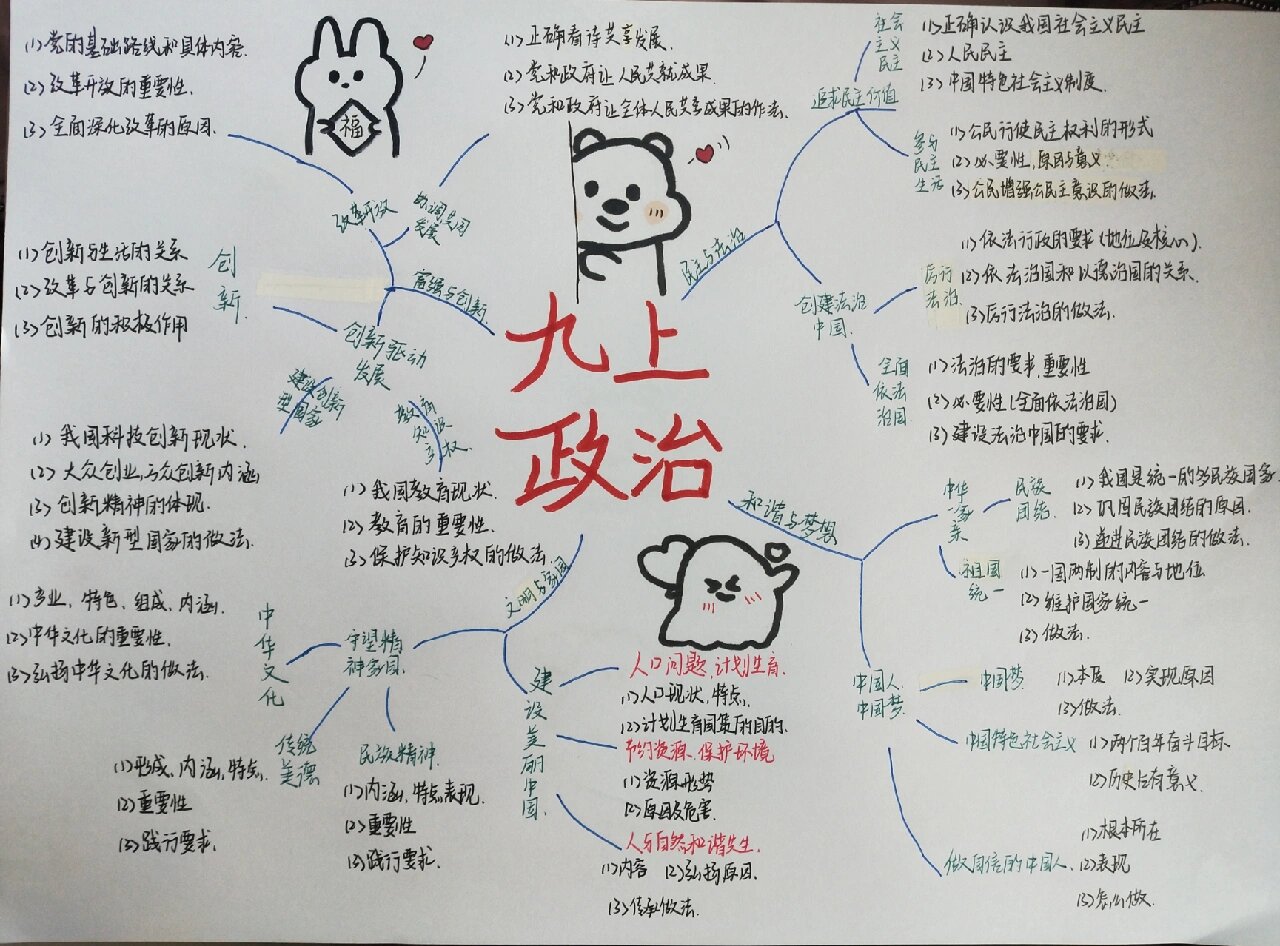 九上
政治
富强与创新
改革开放
(1)党的基础路线和具体内容.
(2)改革开放的重要性.
(3)全面深化改革的原因.
福
协调共同
发展
(1)正确看待共享发展.
(2)党和政府让人民共就成果
(3)党和政府让全体人民共享成果的作法.
创新驱动
发展
创
新
(1)创新与生活的关系
(2)改革与创新的关系
(3)创新的积极作用
建设创新
型国家
(1)我国科技创新现状.
(2)大众创业,万众创新内涵
(3)创新精神的体现.
(4)建设新型国家的做法.
教育
知识
主权
(1)我国教育现状.
(2)教育的重要性.
(3)保护知识产权的做法.
民主与法治
追求民主价值
社会
主义
民主
(1)正确认识我国社会主义民主
(2)人民民主
(3)中国特色社会主义制度.
参与
民主
生活
(1)公民行使民主权利的形式
(2)必要性,原因与意义.
(3)公民增强公民主意识的做法.
创建法治
中国.
厉行
法治.
(1)依法行政的要求(地位及核心).
(2)依法治国和以德治国的关系.
(3)厉行法治的做法.
全面
依法
治国
(1)法治的要求,重要性
(2)必要性(全面依法治国)
(3)建设法治中国的要求.
文明与家园
守望精
神家园.
中
华
文
化
(1)产业、特色、组成、内涵.
(2)中华文化的重要性.
(3)弘扬中华文化的做法.
传统
美德
(1)形成、内涵,特点.
(2)重要性
(3)践行要求.
民族精神.
(1)内涵,特点表现.
(2)重要性
(3)践行要求.
建
设
美
丽
中
国.
人口问题,计划生育.
(1)人口现状,特点.
(2)计划生育国策的目的.
节约资源、保护环境
(1)资源形势
(2)原因及危害.
人与自然和谐共生.
(1)内容 (2)弘扬原因.
(3)传承做法.
和谐与梦想
中华
一家
亲
民族
团结.
(1)我国是统一的多民族国家.
(2)巩固民族团结的原因.
(3)递进民族团结的做法.
祖国
统一
(1)一国两制的内容与地位
(2)维护国家统一
(3)做法.
中国人.
中国梦.
中国梦.
(1)本质 (2)实现原因
(3)做法.
中国特色社会主义
(1)两个百年奋斗目标.
(2)历史占有意义
做自信的中国人.
(1)根本所在
(2)表现
(3)怎么做.